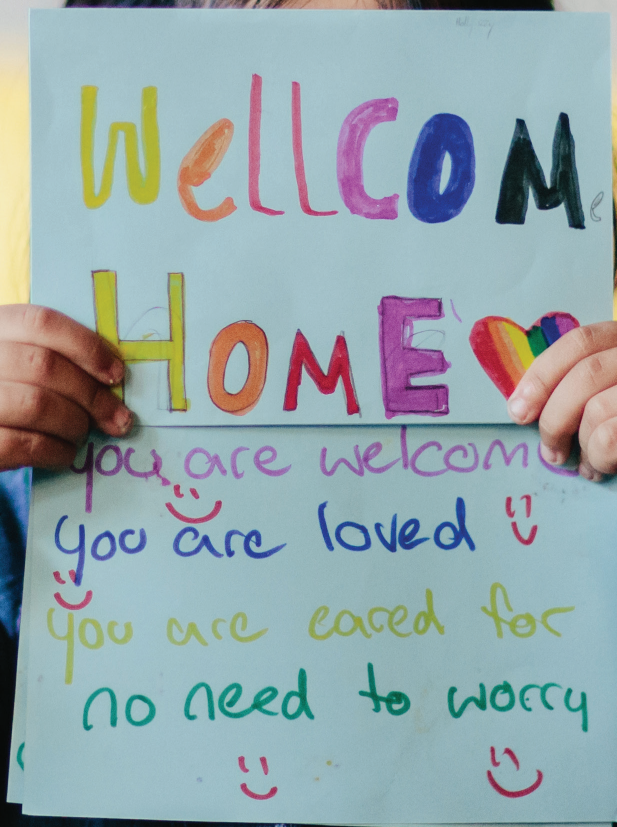 WellCOMe
HOME
you are welcome
you are loved
you are cared for
no need to worry